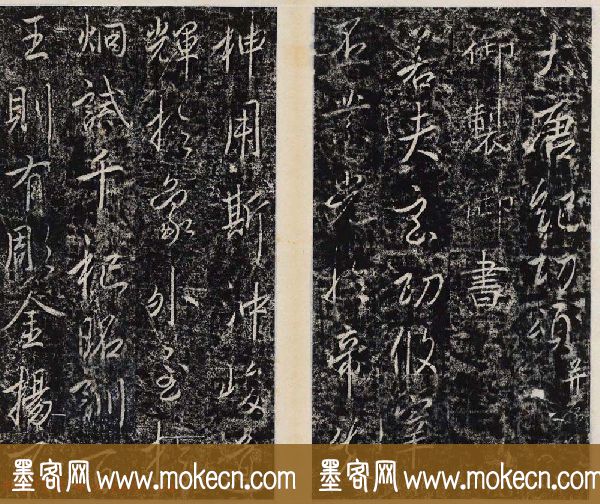 大唐紀功頌并
御製御書
若夫玄功攸宰
於帝
神用斯沖峻
輝於象外至
烟千祀昭訓
王則有彫金揚
墨客网 www.mokecn.com
墨客网 www.mokecn.com